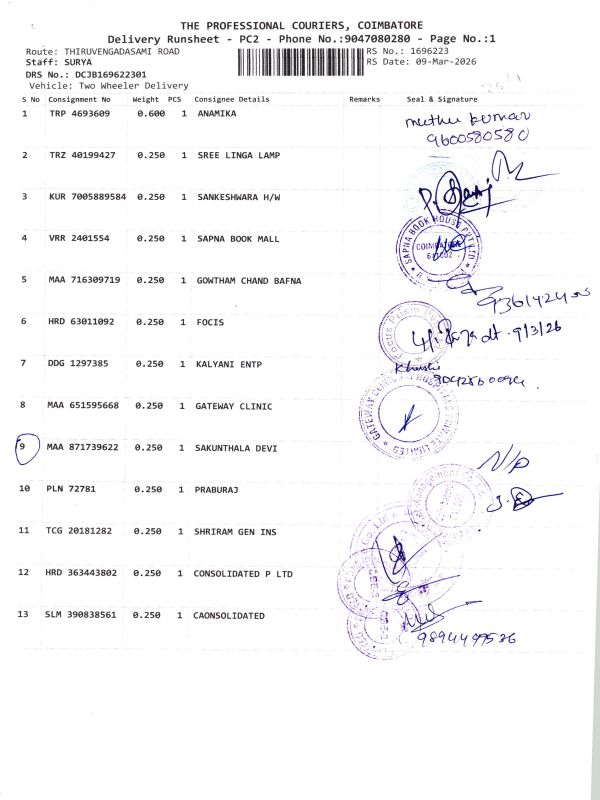 THE PROFESSIONAL COURIERS, COIMBATORE
Delivery Runsheet - PC2 - Phone No.:9047080280 - Page No.:1
Route: THIRUVENGADASAMI ROAD RS No.: 1696223
Staff: SURYA RS Date: 09-Mar-2026
DRS No.: DCJB169622301
Vehicle: Two Wheeler Delivery
S No Consignment No Weight PCS Consignee Details Remarks Seal & Signature
1 TRP 4693609 0.600 1 ANAMIKA muthu kumar
9600580580
2 TRZ 40199427 0.250 1 SREE LINGA LAMP
3 KUR 7005889584 0.250 1 SANKESHWARA H/W
4 VRR 2401554 0.250 1 SAPNA BOOK MALL SAPNA BOOK HOUSE PVT LTD COIMBATORE
5 MAA 716309719 0.250 1 GOWTHAM CHAND BAFNA
6 HRD 63011092 0.250 1 FOCIS 9/3/26
7 DDG 1297385 0.250 1 KALYANI ENTP Khushi
8 MAA 651595668 0.250 1 GATEWAY CLINIC GATEWAY CLINIC
9 MAA 871739622 0.250 1 SAKUNTHALA DEVI N/P
10 PLN 72781 0.250 1 PRABURAJ
11 TCG 20181282 0.250 1 SHRIRAM GEN INS
12 HRD 363443802 0.250 1 CONSOLIDATED P LTD
13 SLM 390838561 0.250 1 CAONSOLIDATED
9894499526